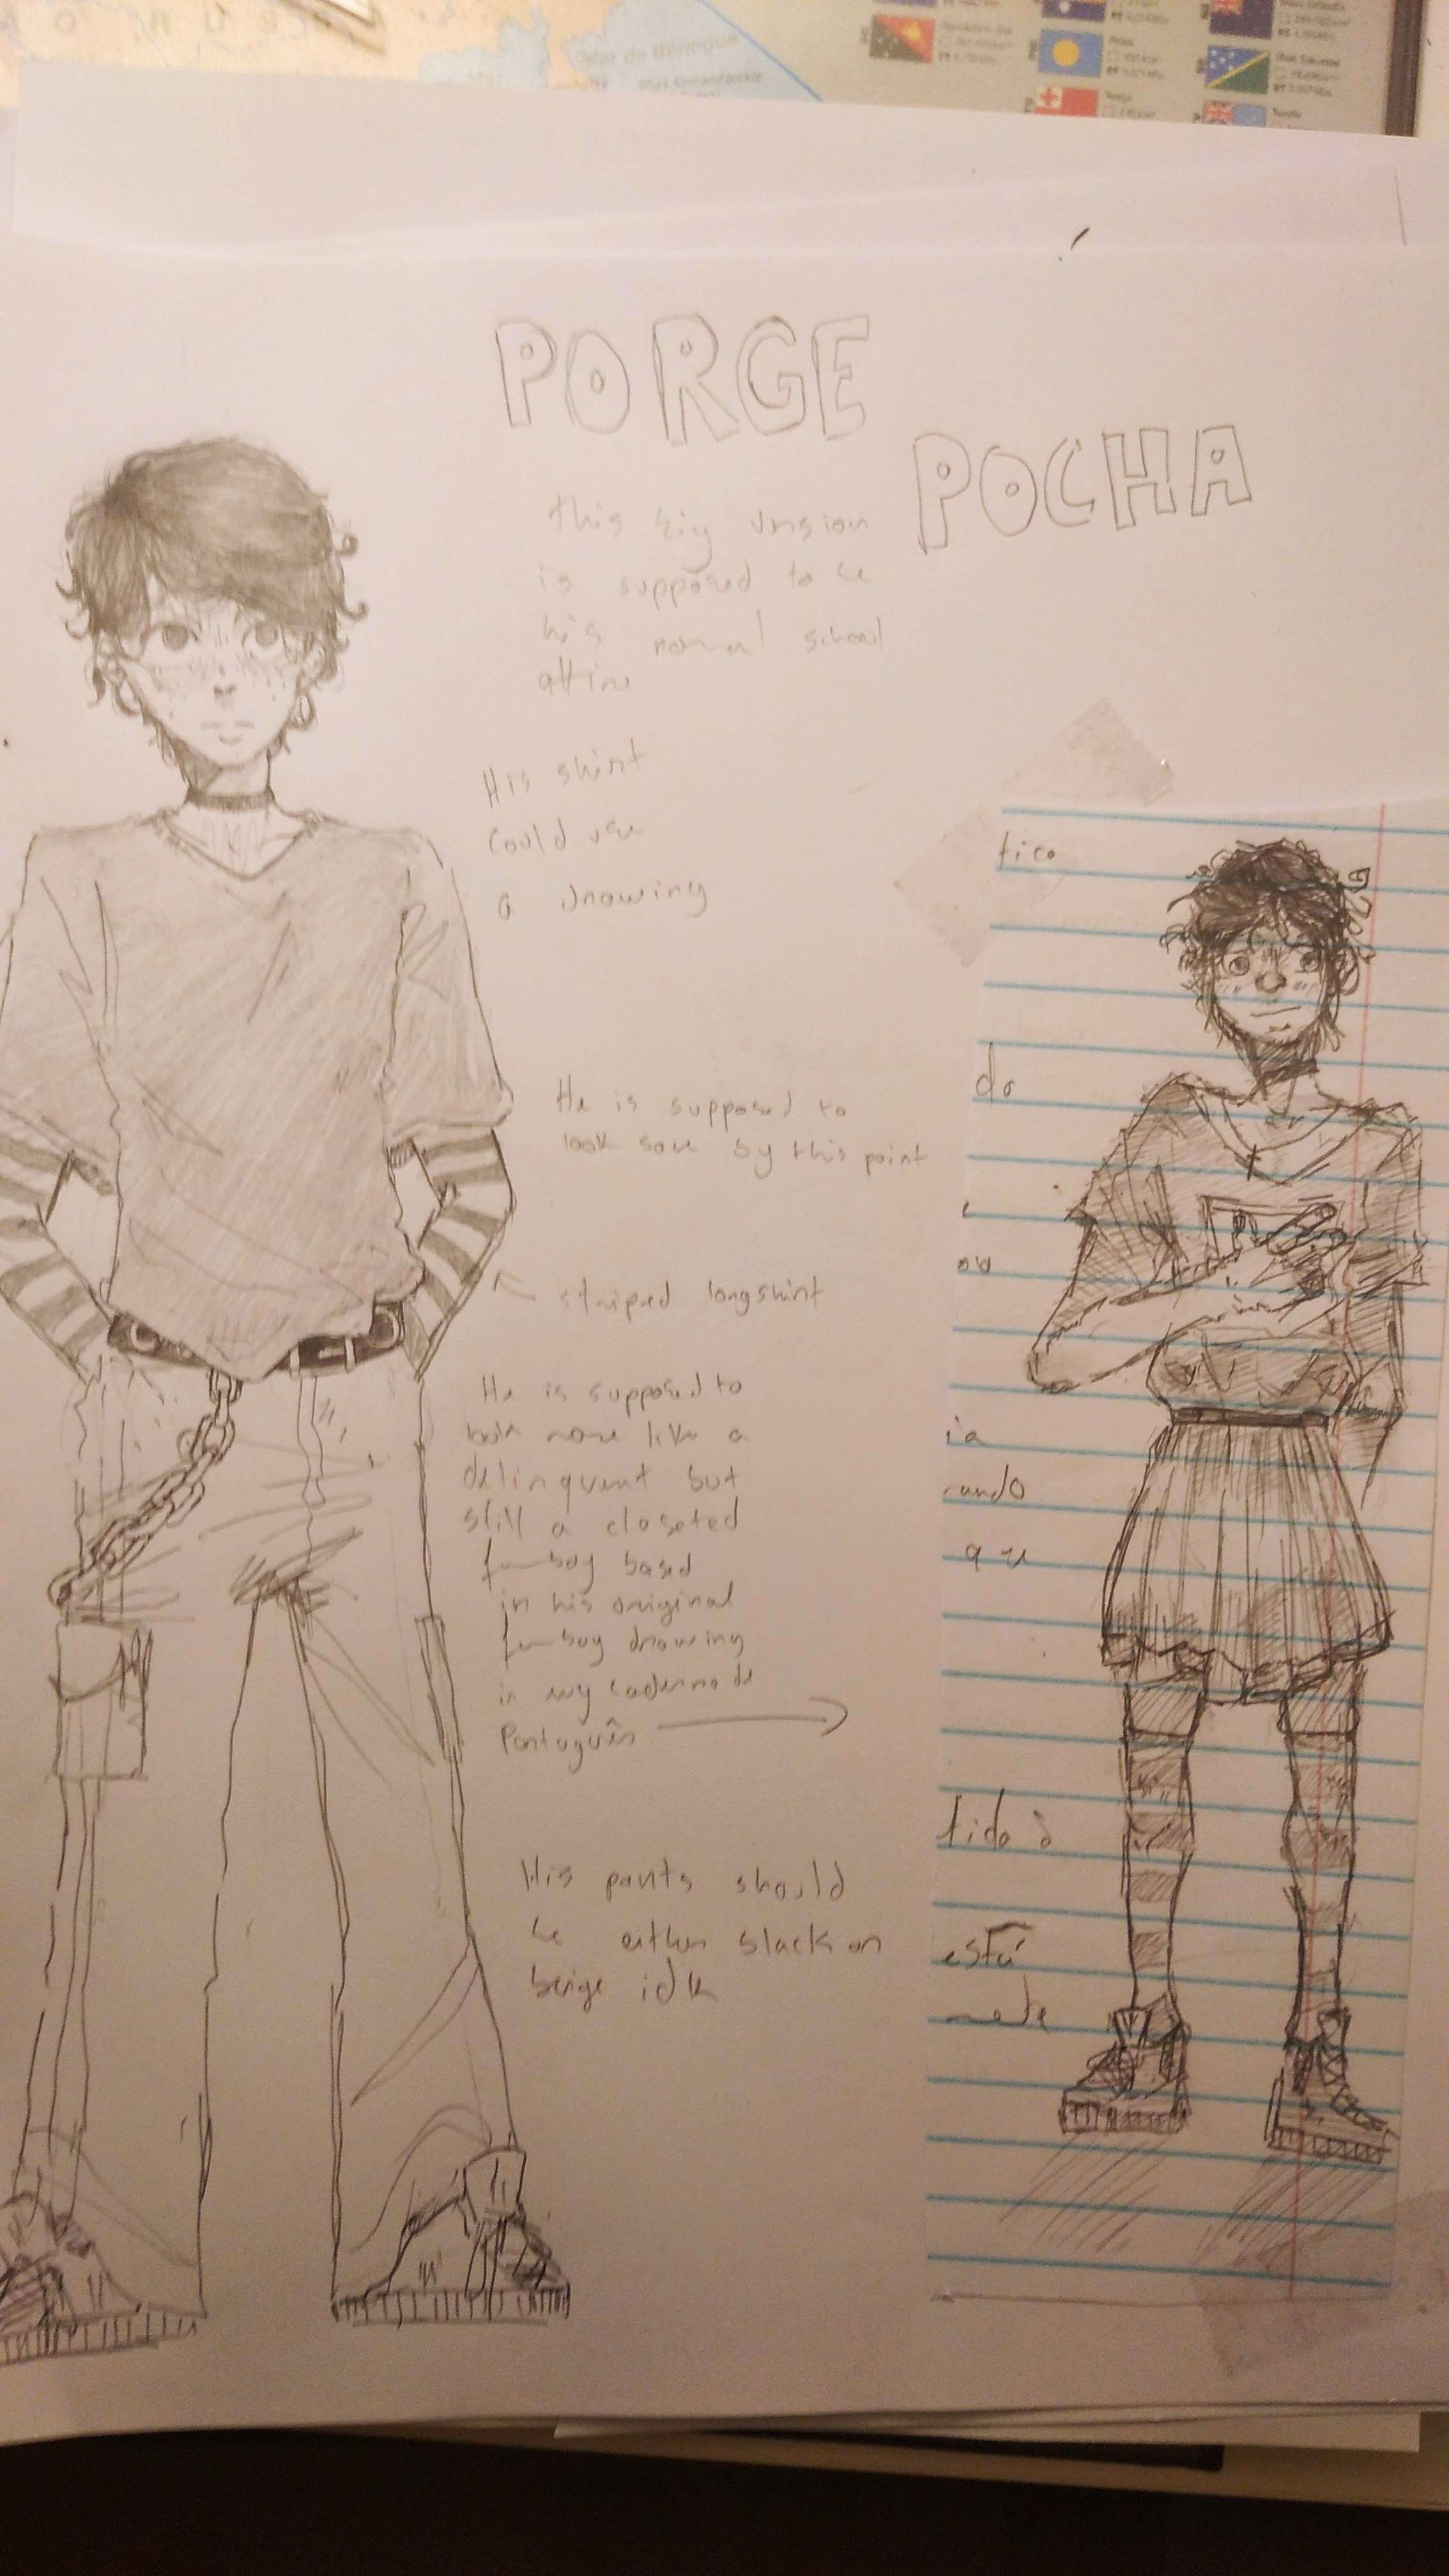 PORGE
POCHA
this big version
is supposed to be
his normal school
attire
His shirt
could use
a drawing
He is supposed to
look sore by this point
striped longshirt
He is supposed to
look more like a
delinquent but
still a closeted
femboy based
in his original
femboy drawing
in my caderno de
Português
His pants should
be either black or
beige idk
tico
do
ou
ia
rando
que
tido à
está
mete
Mar de Bering
Palau
Tonga
Tuvalu